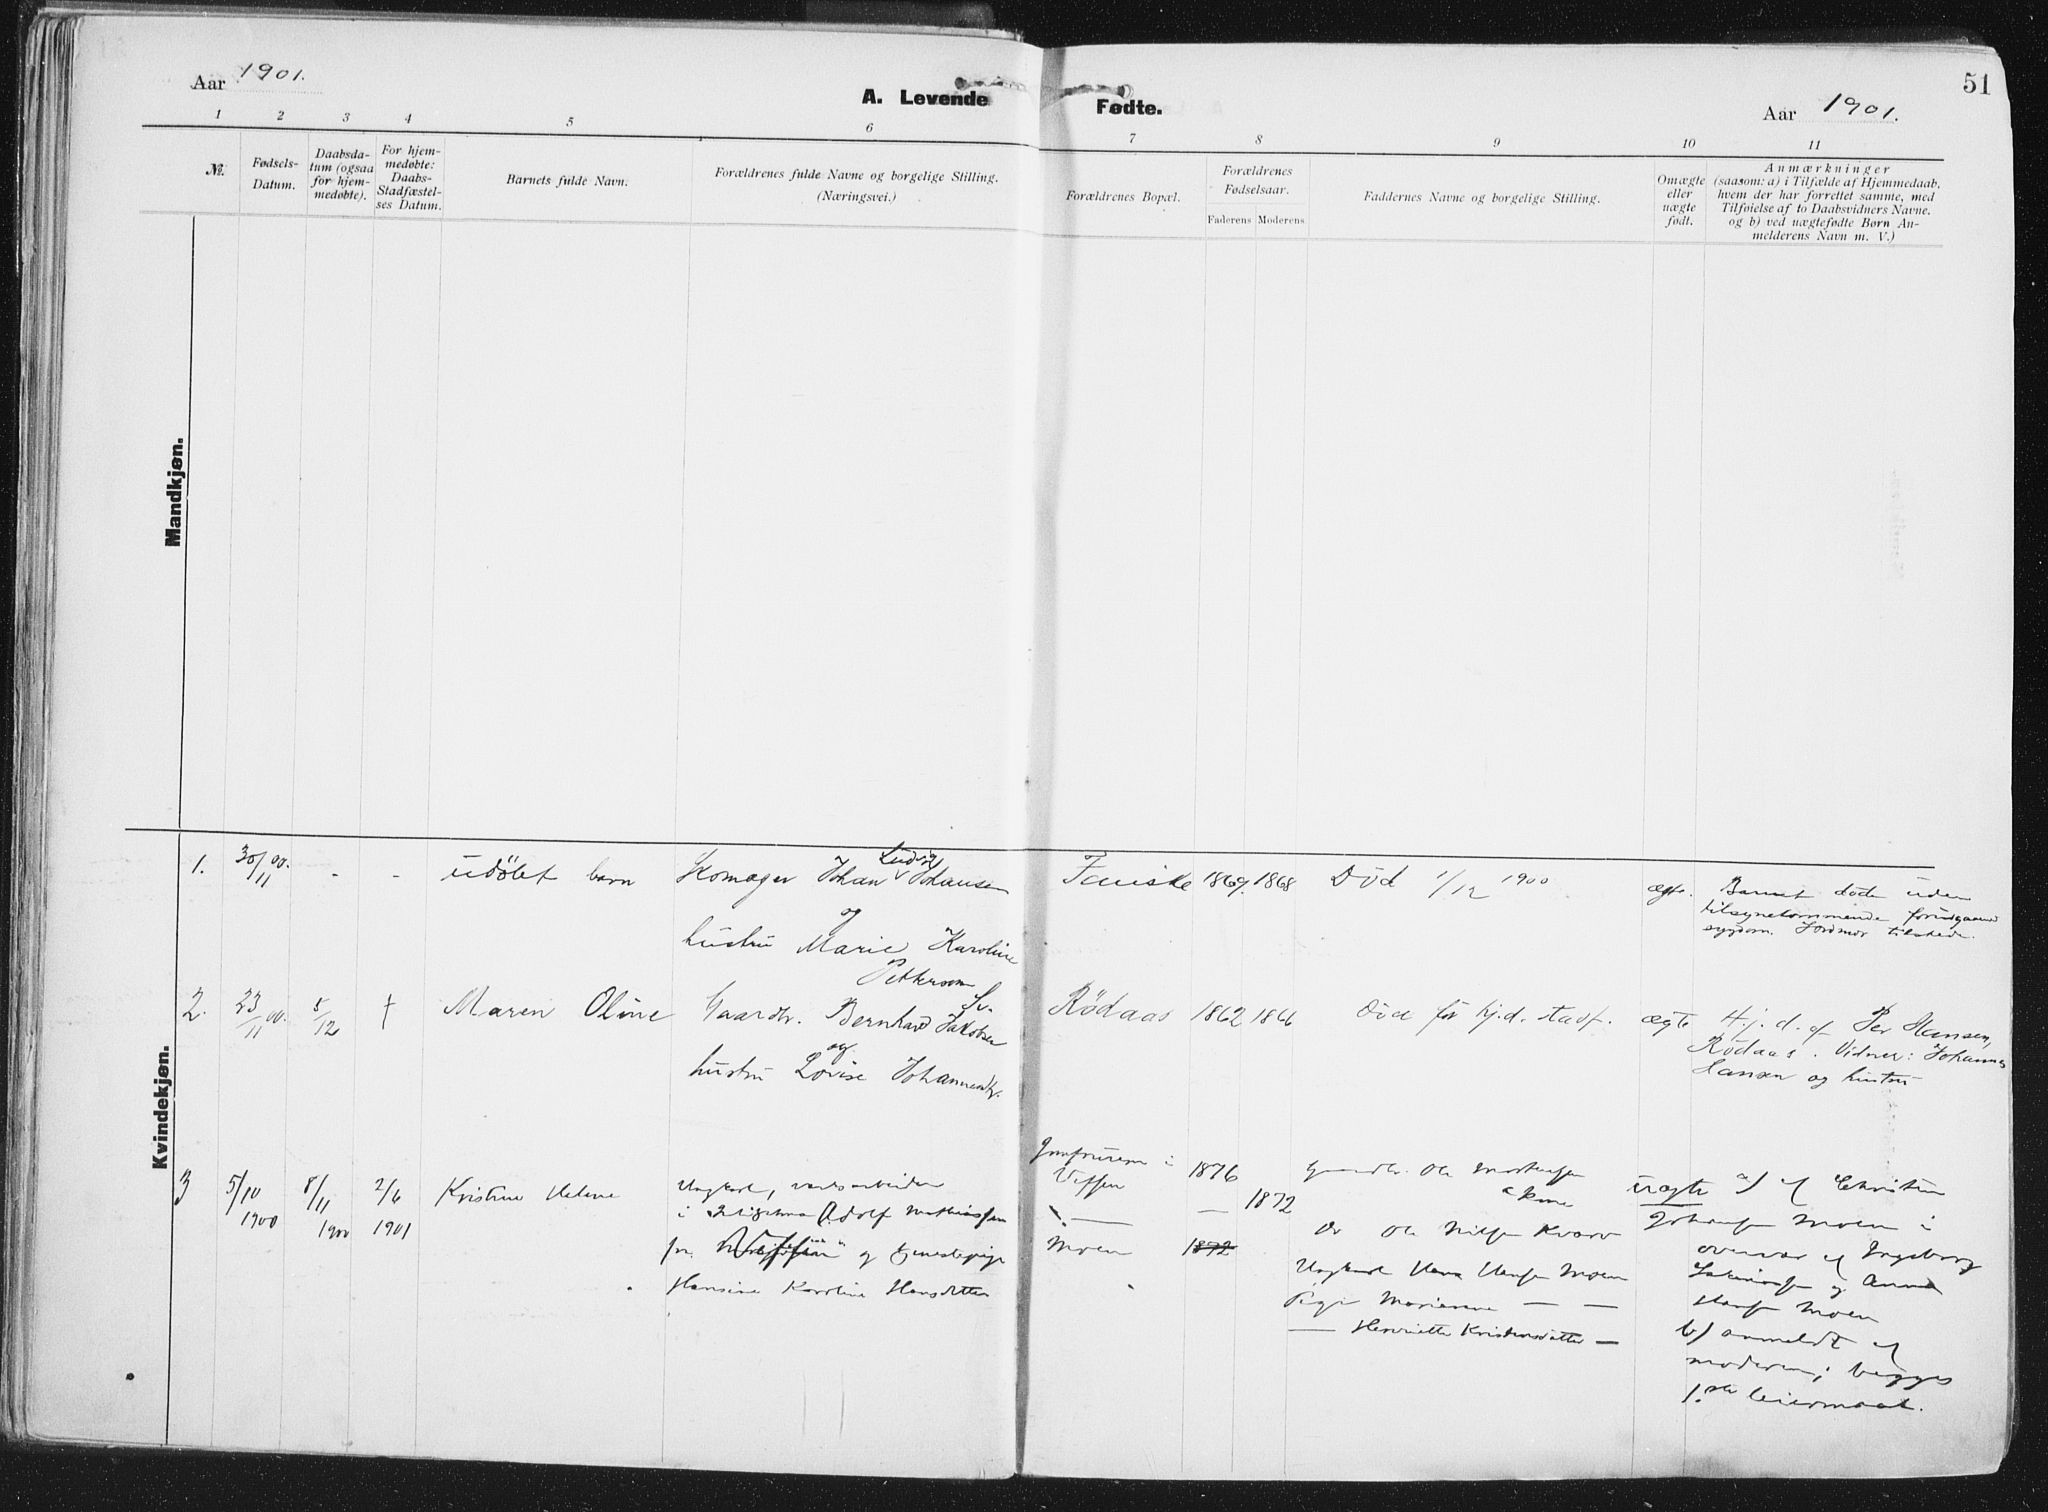 Aar 1901.
A. Levende Fødte.
Aar 1901.
51
1 2 3 4 5 6 7 8 9 10 11
№.
Fødsels-
Datum.
Daabsda-
tum (ogsaa
for hjem-
medøbte).
For hjem-
medøbte:
Daabs-
Stadfæstel-
ses Datum.
Barnets fulde Navn.
Forældrenes fulde Navne og borgelige Stilling.
(Næringsvei.)
Forældrenes Bopæl.
Forældrenes
Fødselsaar.
Faderens Moderens.
Faddernes Navne og borgelige Stilling.
Omægte
eller
uægte
født.
Anmærkninger
(saasom: a) i Tilfælde af Hjemmedaab,
hvem der har forrettet samme, med
Tilføielse af to Daabsvidners Navne.
og b) ved uægtefødte Børn An-
melderens Navn m. V.)
Mandkjøn.
Kvindekjøn.
1.
30/11 00.
-
-
udöbt barn
Skomager Johan Ludvig Johansen
og
hustru Marie Karoline
Pettersen
Fauske
1869. 1868
Död 1/12 1900
ægte.
Barnet döde uden
tilsynekommende forudgaaend
sygdom. Jordmor tilstede.
2.
23/11 00.
5/12
†
Maren Oline
Gaardbr. Bernhard Jakobsen
og
hustru Lovise
Rödaas
1862 1866
Död för hj.d. stadf.
ægte
Hj.d. af Per Hansen,
Rödaas. Vidner: Johannes
Hansen og hustru
3
5/10
1900
8/11
1900
2/6
1901
Kristine Helene
Ungkarl,
i Adolf Mathiassen
fr. og tjenestepige
Hansine Karoline Hansdatter
i
Vefsen
—
Moen
1876
— 1872
1872
Gaardbr. Ola
Do Ole Nilsen
Ungkarl Hans Hansen Moen
Pige Marianne — —
— Henriette Kristensdatter —
uægte
a) af Christen
Johansen Moen i
overvær af Ingeborg
og Anna
Hansen Moen
b) anmeldt af
moderen; begges
1.ste leiermaal.